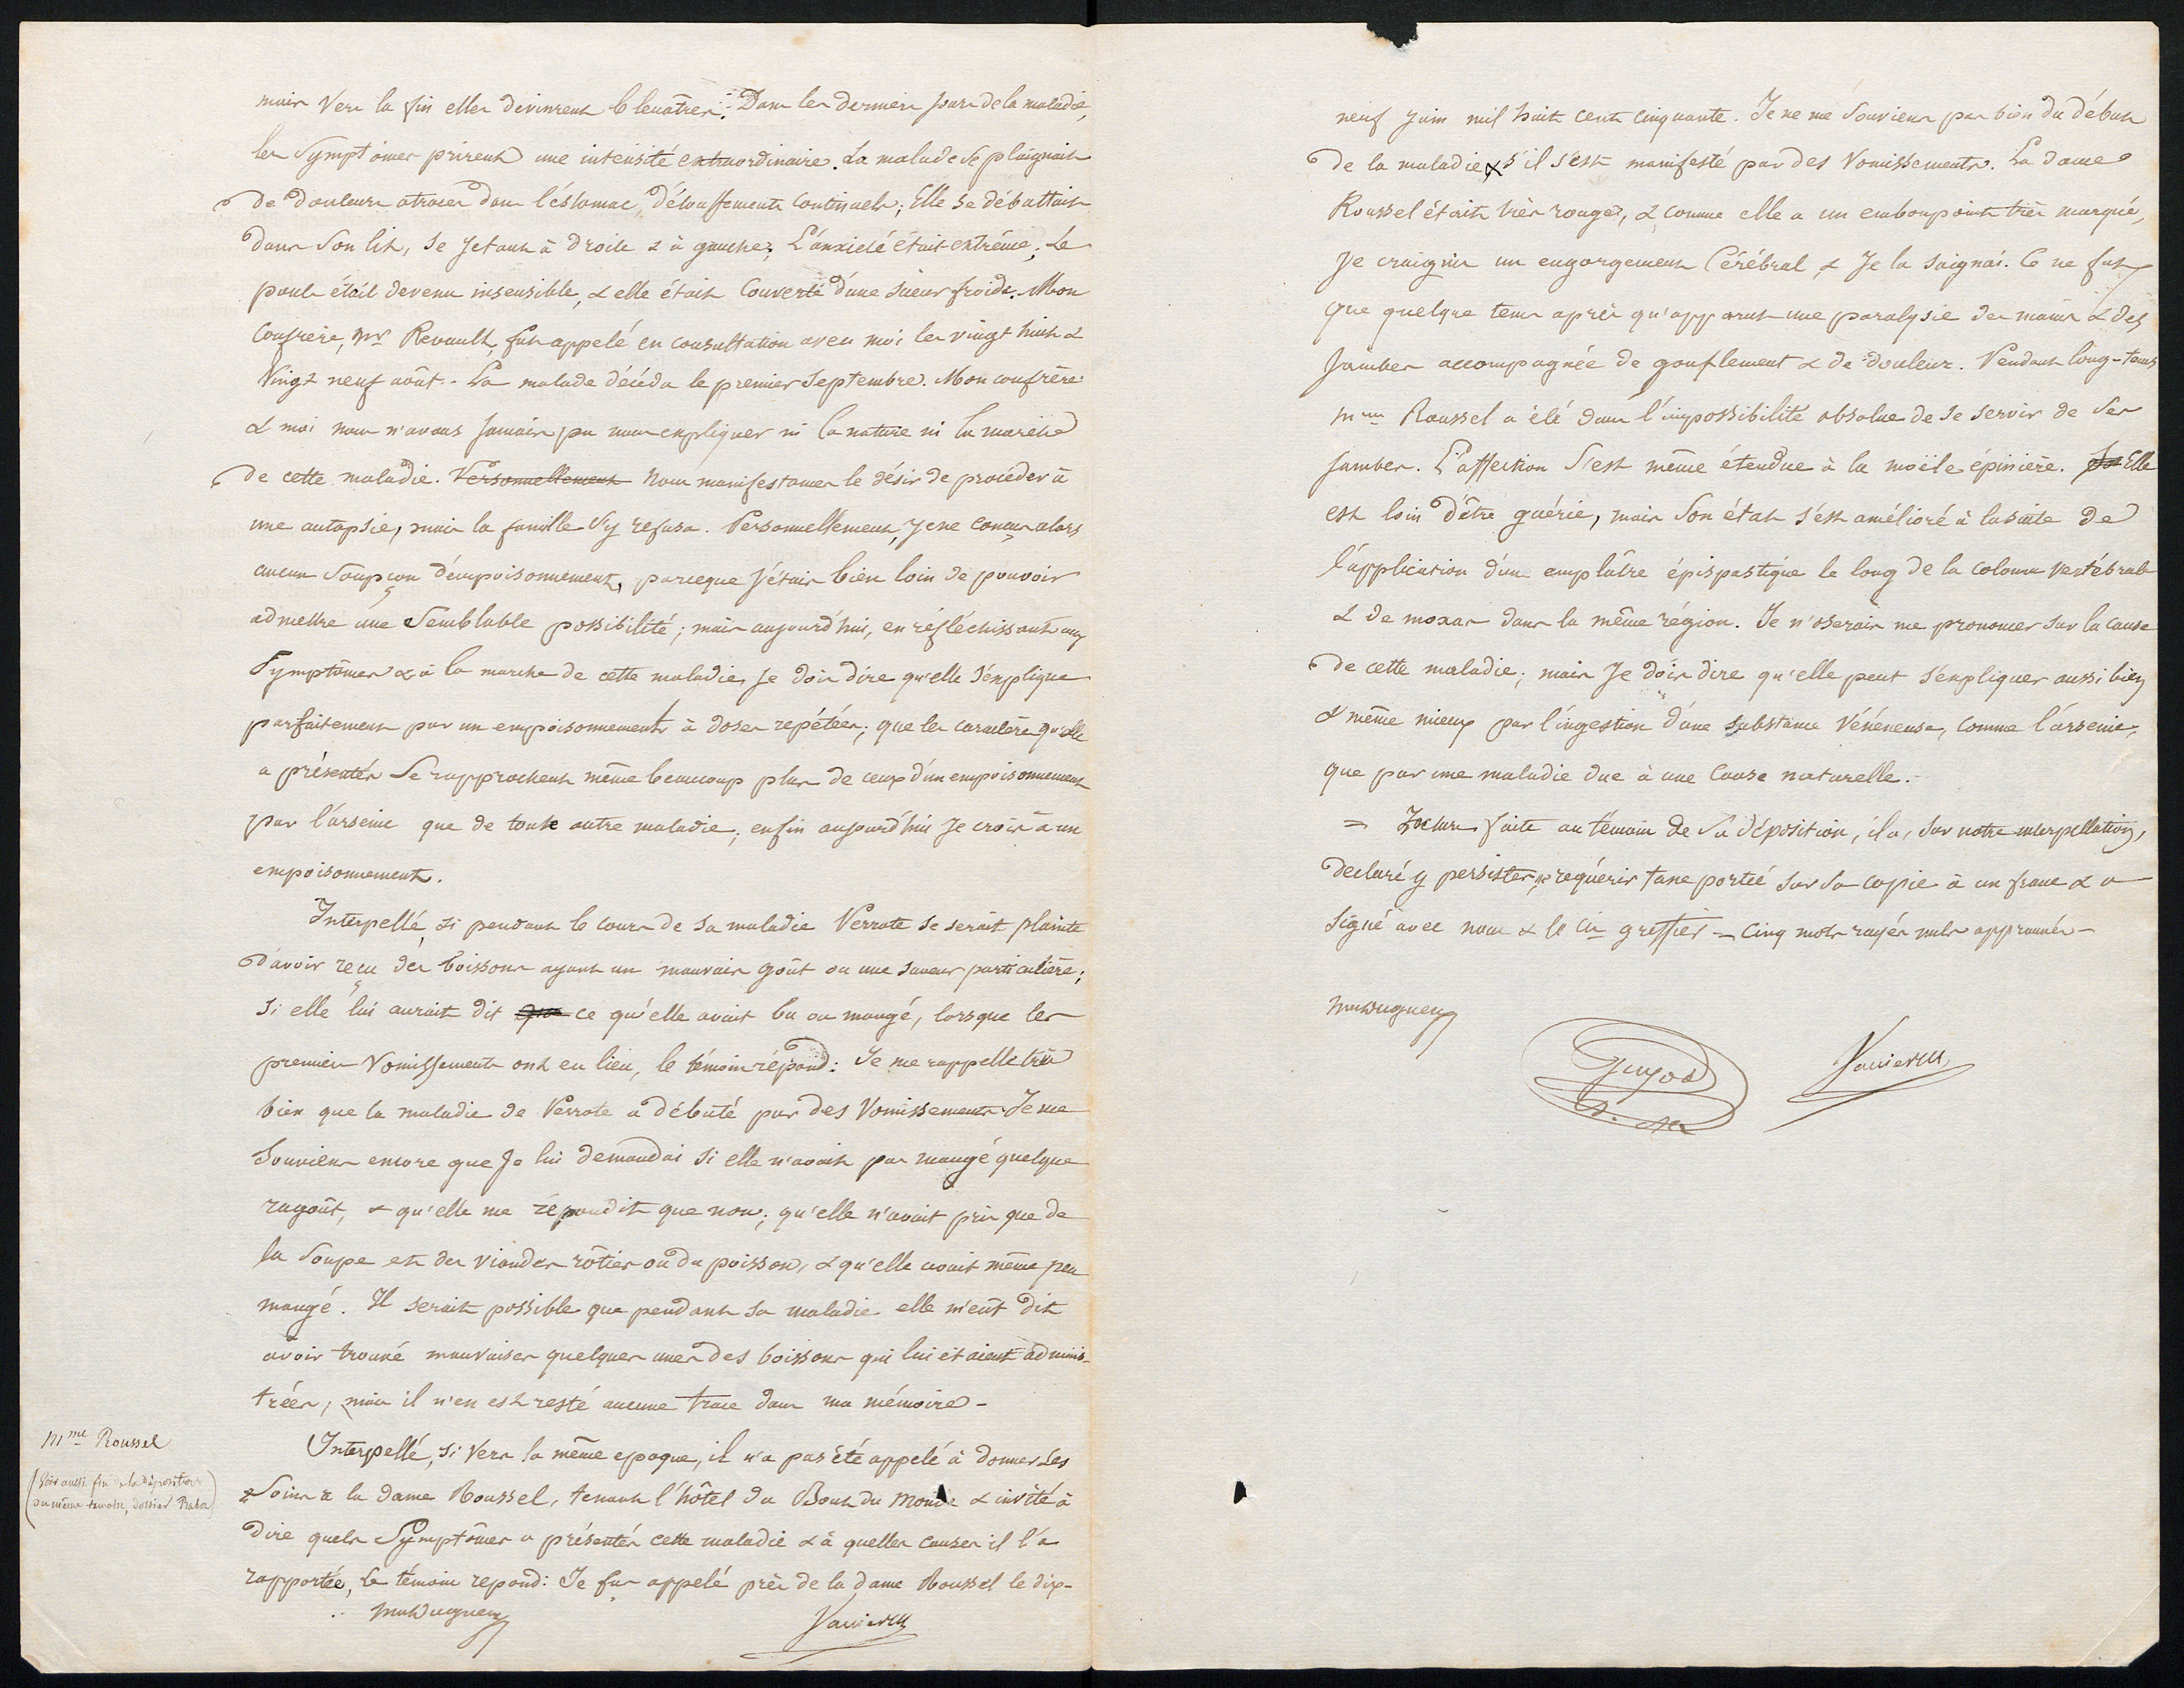 mais vers la fin elles devinrent bleuâtres. Dans les derniers jours de la maladie,
les symptômes prirent une intensité extraordinaire. La malade se plaignait
de douleurs atroces dans l'éstomac, d'étouffements continuels; Elle se débattait
dans son lit, se jetant à droite & à gauche; L'anxiété était extrême; Le
pouls était devenu insensible, & elle était couverte d'une sueur froide. Mon
confrère, Mr Revault, fut appelé en consultation avec moi les vingt huit &
Vingt neuf août. La malade décéda le premier Septembre. Mon confrère
& moi nous n'avons jamais pu nous expliquer ni la nature ni la marche
de cette maladie. Personnellement Nous manifestames le désir de procéder à
une autopsie, mais la famille s'y refusa. Personnellement, je ne conçus alors
aucun soupçon d'émpoisonnement, parceque j'étais bien loin de pouvoir
admettre une semblable possibilité; mais aujourd'hui, en réfléchissant aux
Symptômes & à la marche de cette maladie, je dois dire qu'elle s'explique
parfaitement par un empoisonnement à doses repétées; que les caractères qu'elle
a présentés se rapprochent même beaucoup plus de ceux d'un empoisonnement
par l'arsenic que de toute autre maladie; enfin aujourd'hui je crois à un
empoisonnement.
Interpellé, si pendant le cours de sa maladie Perrote se serait plainte
d'avoir reçu des boissons ayant un mauvais goût ou une saveur particulière;
si elle lui aurait dit que ce qu'elle avait bu ou mangé, lorsque les
premiers vomissements ont eu lieu, le témoin répond: Je me rappelle très
bien que la maladie de Perrote a débuté par des vomissements. Je me
souviens encore que je lui demandai si elle n'avait pas mangé quelque
ragoût, & qu'elle me répondit que non; qu'elle n'avait pris que de
la soupe et des viandes rôties ou du poisson, & qu'elle avait même peu
mangé. Il serait possible que pendant sa maladie elle m'eût dit
avoir trouvé mauvaises quelques unes des boissons qui lui étaient adminis-
trées; mais il n'en est resté aucune trace dans ma mémoire -
Interpellé, si vers la même epoque, il n'a pas été appelé à donner des
soins à la dame Roussel, tenant l'hôtel du Bout du monde & invité à
dire quels symptômes a présentés cette maladie & à quelles causes il l'a
rapportée, Le témoin repond: Je fus appelé près de la dame Roussel le dix-
Mme Roussel
(Voir aussi fin de la déposition
du même témoin, dossier Rabot)
neuf juin mil huit cent cinquante. Je ne me souviens pas bien du début
de la maladie & s'il s'est manifesté par des vomissements. La dame
Roussel était très rouge, & comme elle a un embonpoint très marqué,
je craignis un engorgement Cérébral & je la saignai. Ce ne fut
que quelque tems après qu'apparut une paralysie des mains & des
jambes accompagnée de gonflement & de douleur. Pendant long-tems
Mme Roussel a été dans l'impossibilité absolue de se servir de ses
jambes. L'affection s'est même étendue à la moële épinière. Elle
est loin d'être guérie, mais son état s'est amélioré à la suite de
l'application d'un emplâtre épispastique le long de la colonne vertébrale
& de moxas dans la même région. Je n'oserais me prononcer sur la cause
de cette maladie; mais je dois dire qu'elle peut s'expliquer aussi bien
& même mieux par l'ingestion d'une substance vénéneuse, comme l'arsenic,
que par une maladie due à une cause naturelle. -
= Lecture faite au témoin de sa déposition, il a, sur notre interpellation,
declaré y persister, requérir taxe portée sur sa copie à un franc & a
signé avec nous & le Cis greffier - Cinq mots rayés nuls approuvés -